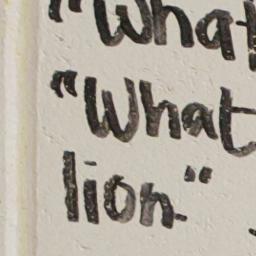 "What
"What
lion"